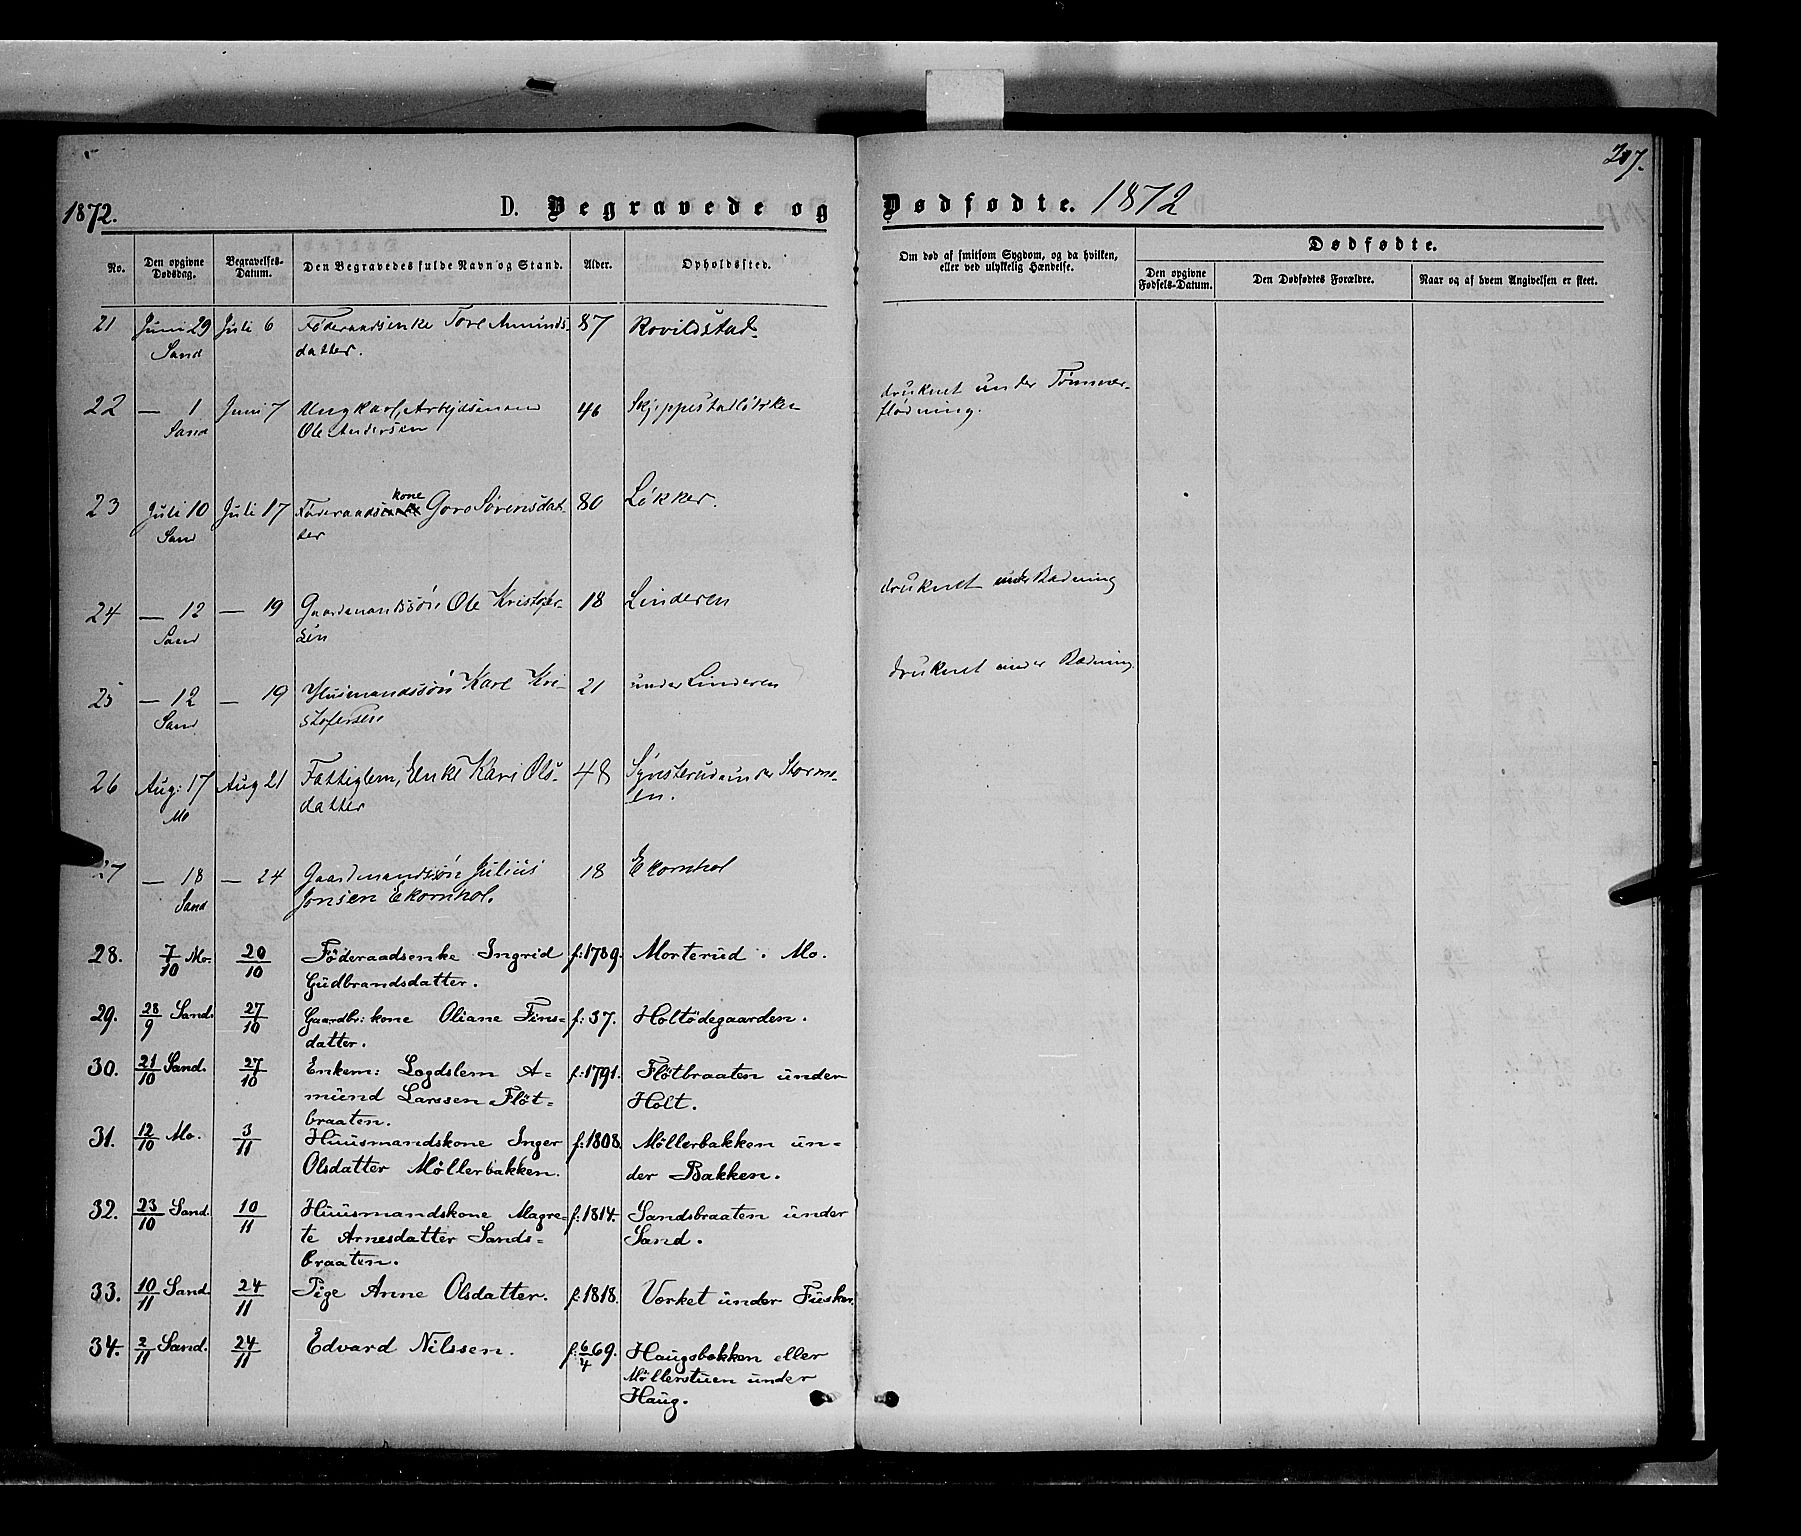 207.
1872. D. Begravede og Dødfødte. 1872
No. Den opgivne Dødsdag. Begravelses-Datum. Den Begravedes fulde Navn og Stand. Alder. Opholdssted. Om død af smitsom Sygdom, og da hvilken, eller ved ulykkelig Hændelse. Dødfødte.
Den opgivne Fødsels-Datum. Den Dødfødtes Forældre. Naar og af hvem Angivelsen er skeet.
21 Juni 29 Juli 6 Føderaadsenke Tore Amunds- 87 Rovildstad
Sand datter.
22 — 1 Juni 7 Ungkarl, Arbejdsmand 46 druknet under Tømmer-
Sand Ole Andersen flødning.
23 Juli 10 Juli 17 Føderaads kone Goro Sörensdat- 80 Løkker.
Sand ter
24 — 12 — 19 Gaardmandssøn Ole Kristofer- 18 Linderen druknet under Badning
Sand sen
25 — 12 — 19 Husmandssøn Karl Kri- 21 under Linderen druknet under Badning
Sand stofersen
26 Aug: 17 Aug 21 Fattiglem, Enke Kari Ols- 48 under
Mo datter en.
27 — 18 — 24 Gaardmandssøn Julius 18 Ekornhol
Sand Jonsen Ekornhol.
28. 7/10 Mo. 20/10 Föderaadsenke Ingrid f: 1789. Morterud. Mo.
Gudbrandsdatter.
29. 28/9 Sand. 27/10 Gaardbr: kone Oliane Fins= f: 37. Holtödegaarden.
datter.
30. 21/10 Sand. 27/10 Enkem: Lægdslem A= f: 1791. Flötbraaten under
mund Larssen Flöt= Holt.
braaten.
31. 12/10 Mo. 3/11 Huusmandskone Inger f: 1808. Møllerbakken un=
Olsdatter Møllerbakken. der Bakken.
32. 23/10 Sand. 10/11 Huusmandskone Magre= f: 1814. Sandsbraaten under
te Arnesdatter Sands= Sand.
braaten.
33. 10/11 Sand. 24/11 Pige Anne Olsdatter. f: 1818. Værket under
34. 2/11 Sand. 24/11 Edvard Nilssen. f: 6/4 69. Haugsbakken eller
Møllerstuen under
Haug.